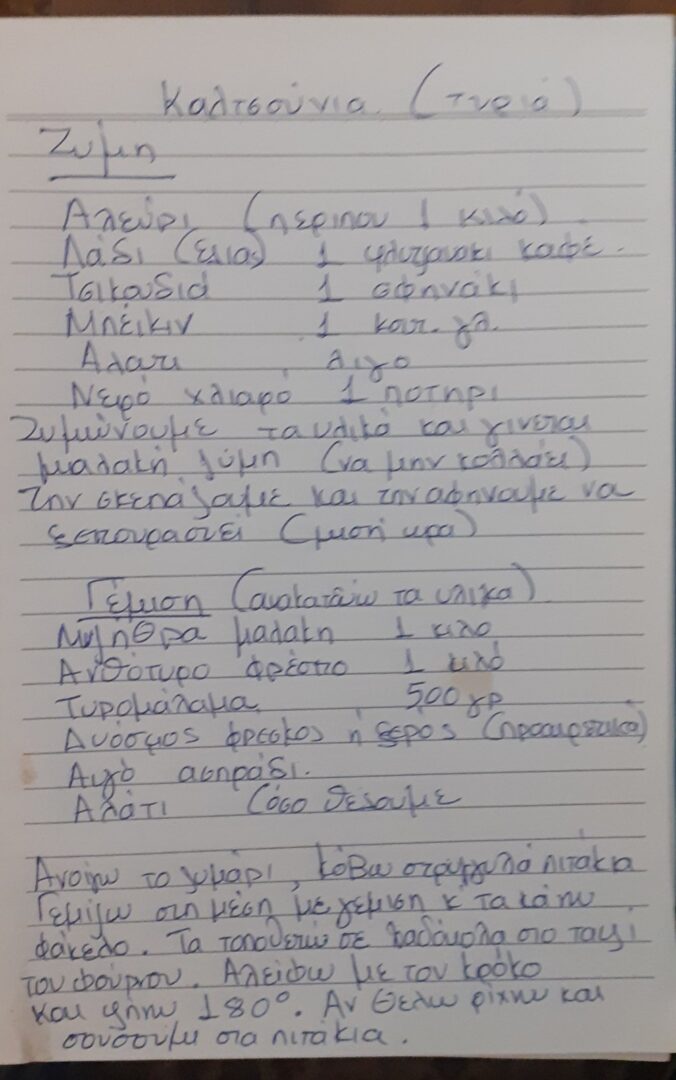 Καλτσούνια (τυριά)
Ζύμη
Αλεύρι (περιπου 1 κιλό)
Λάδι (ελιας) 1 φλυτζανακι καφέ.
Τσικουδιά 1 σφηνάκι
Μπέικιν 1 κουτ. γλ.
Αλατι λιγο
Νερό χλιαρό 1 ποτηρι
Ζυμώνουμε τα υλικά και γινεται
μαλακή ζύμη (να μην κολλάει)
Την σκεπάζουμε και την αφηνουμε να
ξεκουραστεί (μιση ωρα)
Γέμιση (ανακατεύω τα υλικα)
Μυζηθρα μαλακη 1 κιλο
Ανθότυρο φρέσκο 1 κιλό
Τυρομάλαμα 500 γρ
Δυόσμος φρεσκος ή ξερος (προαιρετικά)
Αυγό ασπράδι.
Αλάτι (όσο θέλουμε
Ανοίγω το ζυμάρι, κόβω στρογγυλά πιτάκια
Γεμίζω στη μέση με γέμιση κ τα κάνω
φάκελο. Τα τοποθετώ σε λαδόκολα στο ταψί
του φούρνου. Αλείφω με τον κρόκο
και ψηνω 180°. Αν θελω ριχνω και
σουσουμι στα πιτάκια.